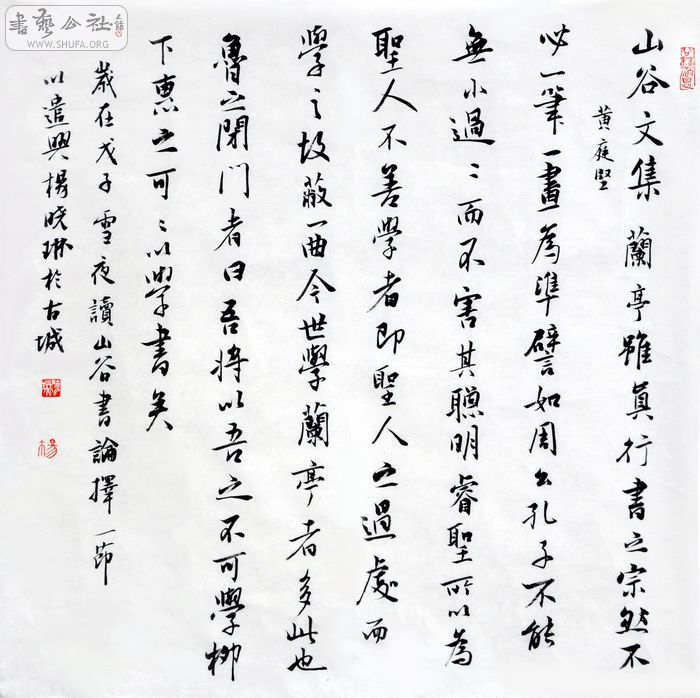 山谷文集 蘭亭雖真行書之宗然不
黄庭堅
必一筆一畫為準譬如周公孔子不能
無小過〻而不害其聰明睿聖所以為
聖人不善學者即聖人之過處而
學之故蔽一曲今世學蘭亭者多此也
魯之閉門者曰吾將以吾之不可學柳
下惠之可〻以學書矣
歲在戊子雪夜讀山谷書論擇一節
以遣興楊曉琳於古城
楊
書藝公社
WWW.SHUFA.ORG